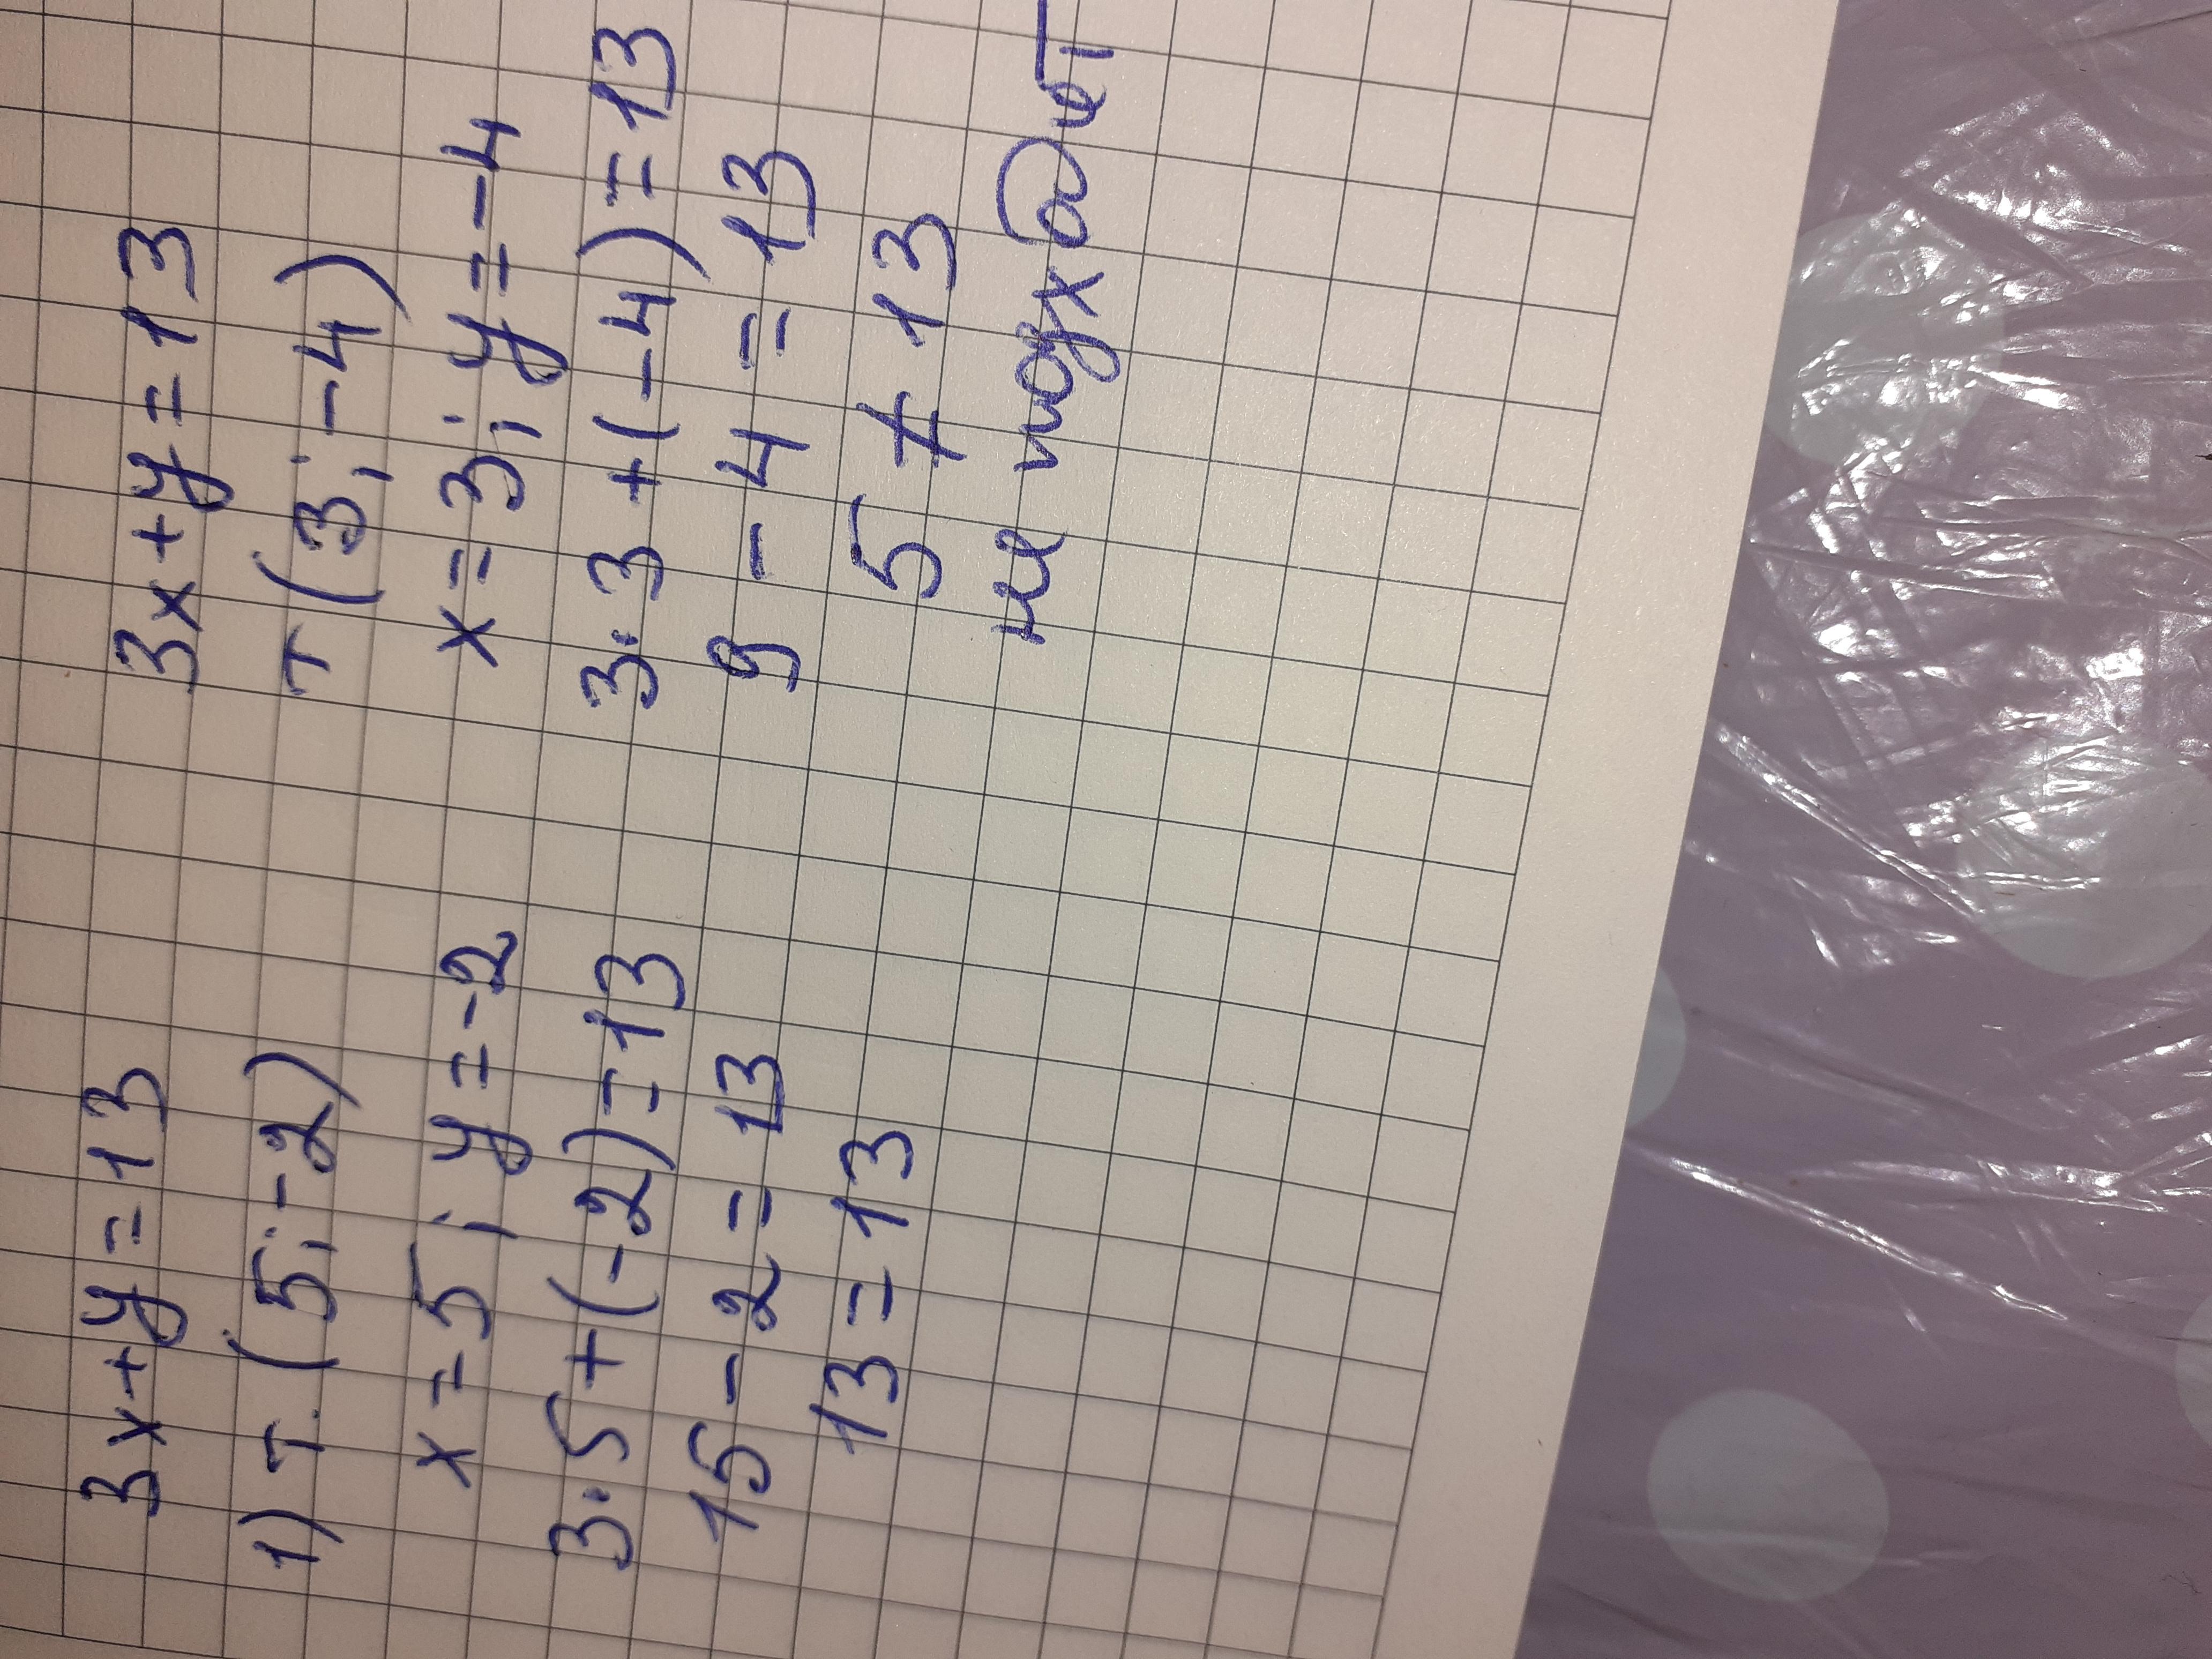 3x+y=13
1) т. (5;-2)
x=5; y=-2
3·5+(-2)=13
15-2=13
13=13
3x+y=13
т (3;-4)
x=3; y=-4
3·3+(-4)=13
9-4=13
5≠13
не подходит